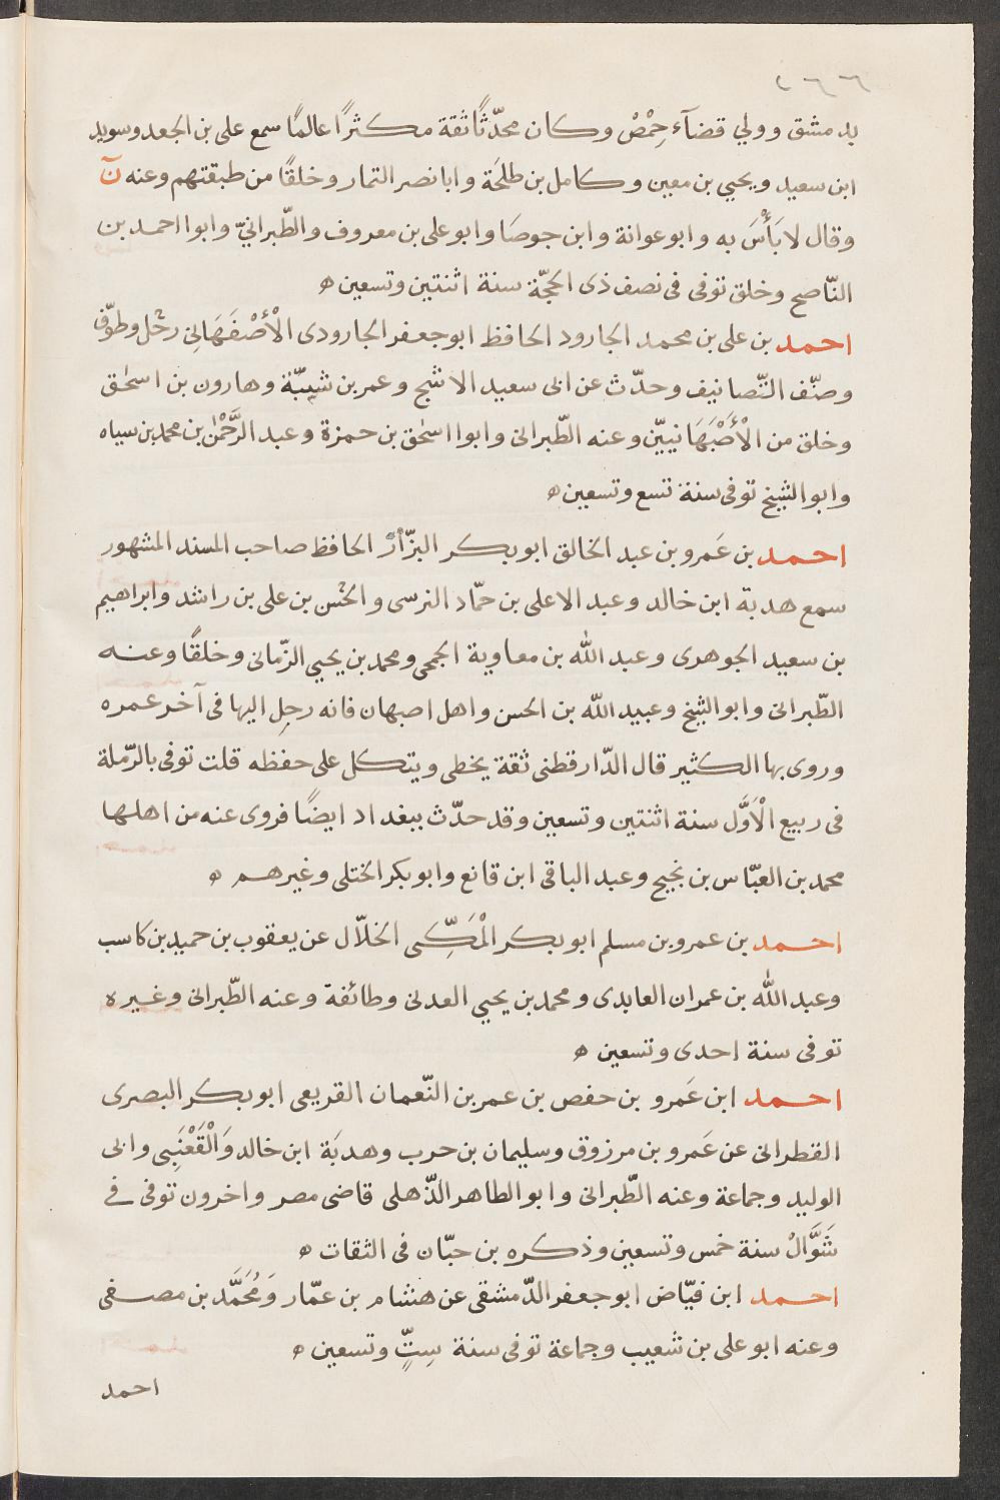 ٢٦٦
بدمشق وولي قضآء حِمْصْ وكان محدّثًا ثقة مكثرًا عالمًا سمع على بن الجعد وسويد
ابن سعيد ويحيي بن معين وكامل بن طلحَة وابا نصر التمار وخلقًا من طبقتهم وعنه نٓ
وقال لا بَأْسَ به وابو عوانة وابن جوصَا وابو على بن معروف والطّبرانيّ وابوا احمد بن
النّاصح وخلق توفى فى نصف ذى الحجّة سنة اثنتين وتسعين ه
احمد بن على بن محمد الجارود الحافظ ابو جعفر الجارودى الْأَصْفَهَانِي رحُل وطوّف
وصنّف التّصانيف وحدّث عن ابى سعيد الاشج وعمر بن شيبّة وهارون بن اسحٰق
وخلق من الْأَصْبَهَانييّن وعنه الطّبرانى وابوا اسحٰق بن حمزة وعبد الرَّحْمٰن بن محمد بن سياه
وابو الشيخ توفى سنة تسع وتسعين ه
احمد بن عَمرو بن عبد الخالق ابو بكر البزّار الحافظ صاحب المسند المشهور
سمع هدبة ابن خالد وعبد الاعلى بن حمّاد النرسى والحُسن بن على بن راشد وابراهيم
بن سعيد الجوهرى وعبد الله بن معاوية الجمحى ومحمد بن يحيي الزّمانى وخلقًا وعنه
الطّبرانى وابو الشيخ وعبيد الله بن الحسن واهل اصبهان فانه رحِل اليها فى آخر عمره
وروى بها الكثير قال الدّارقطنى ثقة يخطى ويتكل على حفظه قلت توفى بالرّملة
فى ربيع الْاَوَّل سنة اثنتين وتسعين وقد حدّث ببغداد ايضًا فروى عنه من اهلها
محمد بن العبّاس بن نجيح وعبد الباقى ابن قانع وابو بكر الختلى وغيرهم ه
احمد بن عمرو بن مسلم ابو بكر الْمَكِّى الخلّال عن يعقوب بن حميد بن كاسب
وعبد الله بن عمران العابدى ومحمد بن يحيي العدنى وطائفة وعنه الطّبرانى وغيره
توفى سنة احدى وتسعين ه
احمد ابن عَمرو بن حفص بن عمر بن النّعمان القريعى ابو بكر البصرى
القطرانى عن عَمرو بن مرزوق وسليمان بن حرب وهدبَة ابن خالد وَالْقَعْنَبِى وابى
الوليد وجماعة وعنه الطّبرانى وابو الطاهر الذّهلى قاضى مصر واخرون توفى فى
شَوَّالْ سنة خمس وتسعين وذكره بن حبّان فى الثقات ه
احمد ابن فيّاض ابو جعفر الدّمشقى عن هشام بن عمّار وَمُحَمَّد بن مصفى
وعنه ابو على بن شعيب وجماعة توفى سنة سِتٍّ وتسعين ه
احمد